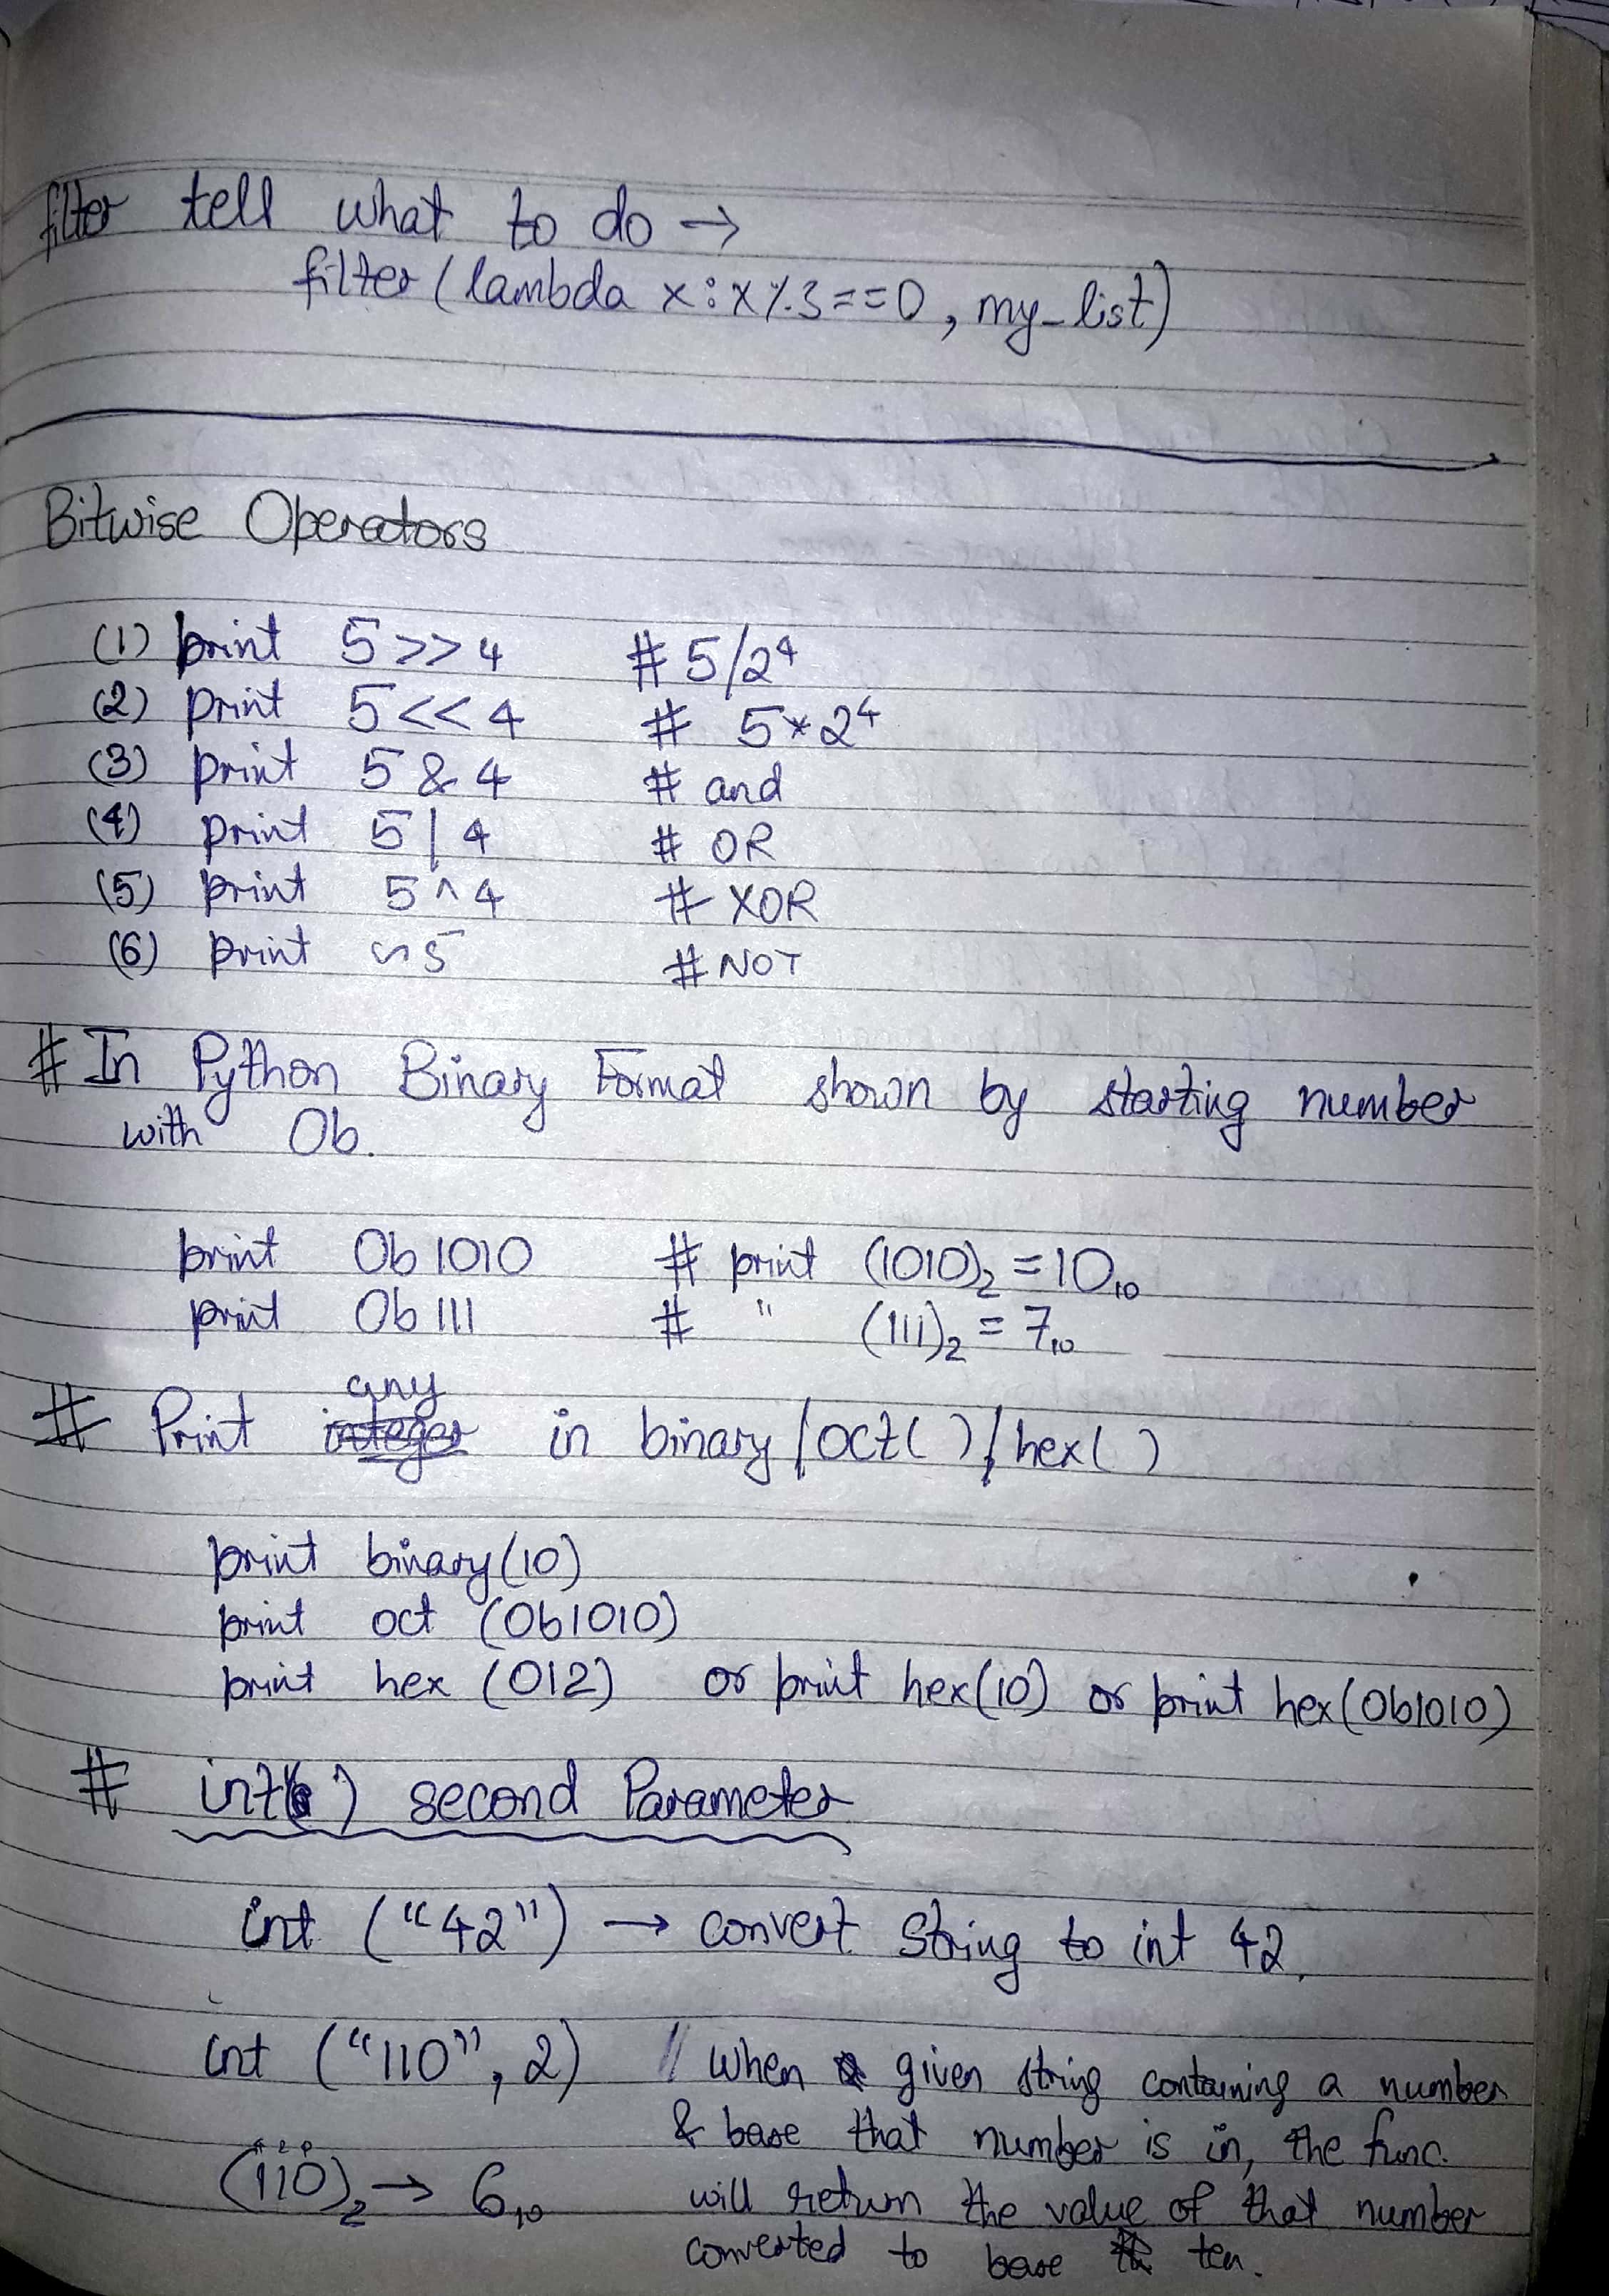 filter tell what to do →
filter (lambda x: x%3==0, my_list)
Bitwise Operators
(1) print 5>>4 # 5/2⁴
(2) print 5<<4 # 5*2⁴
(3) print 5 & 4 # and
(4) print 5 | 4 # OR
(5) print 5 ^ 4 # XOR
(6) print ~5 # NOT
# In Python Binary Format shown by starting number
with 0b.
print 0b1010 # print (1010)₂ = 10₁₀
print 0b111 # " (111)₂ = 7₁₀
any
# Print integer in binary/oct()/hex()
print binary(10)
print oct (0b1010)
print hex (012) or print hex(10) or print hex(0b1010)
# int() second Parameter
int ("42") → convert string to int 42.
int ("110", 2) // When given string containing a number
& base that number is in, the func.
(110)₂ → 6₁₀ will return the value of that number
converted to base ten.